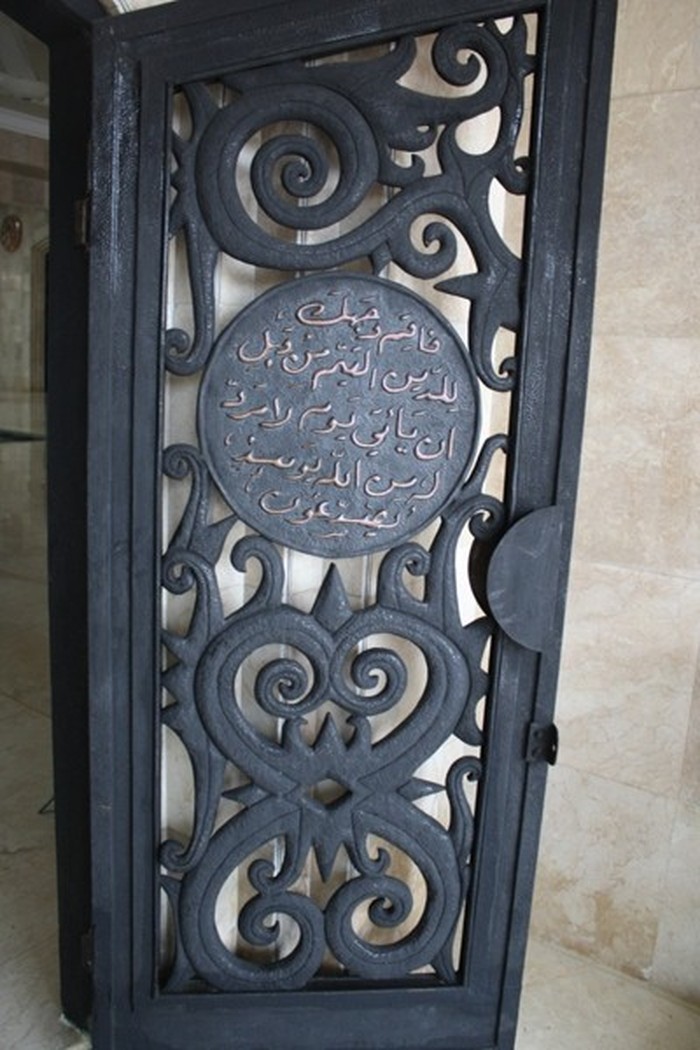 فاقم وجهك
للدين القيم من قبل
ان يأتي يوم لا مرد
له من الله يومئذ
يصدعون